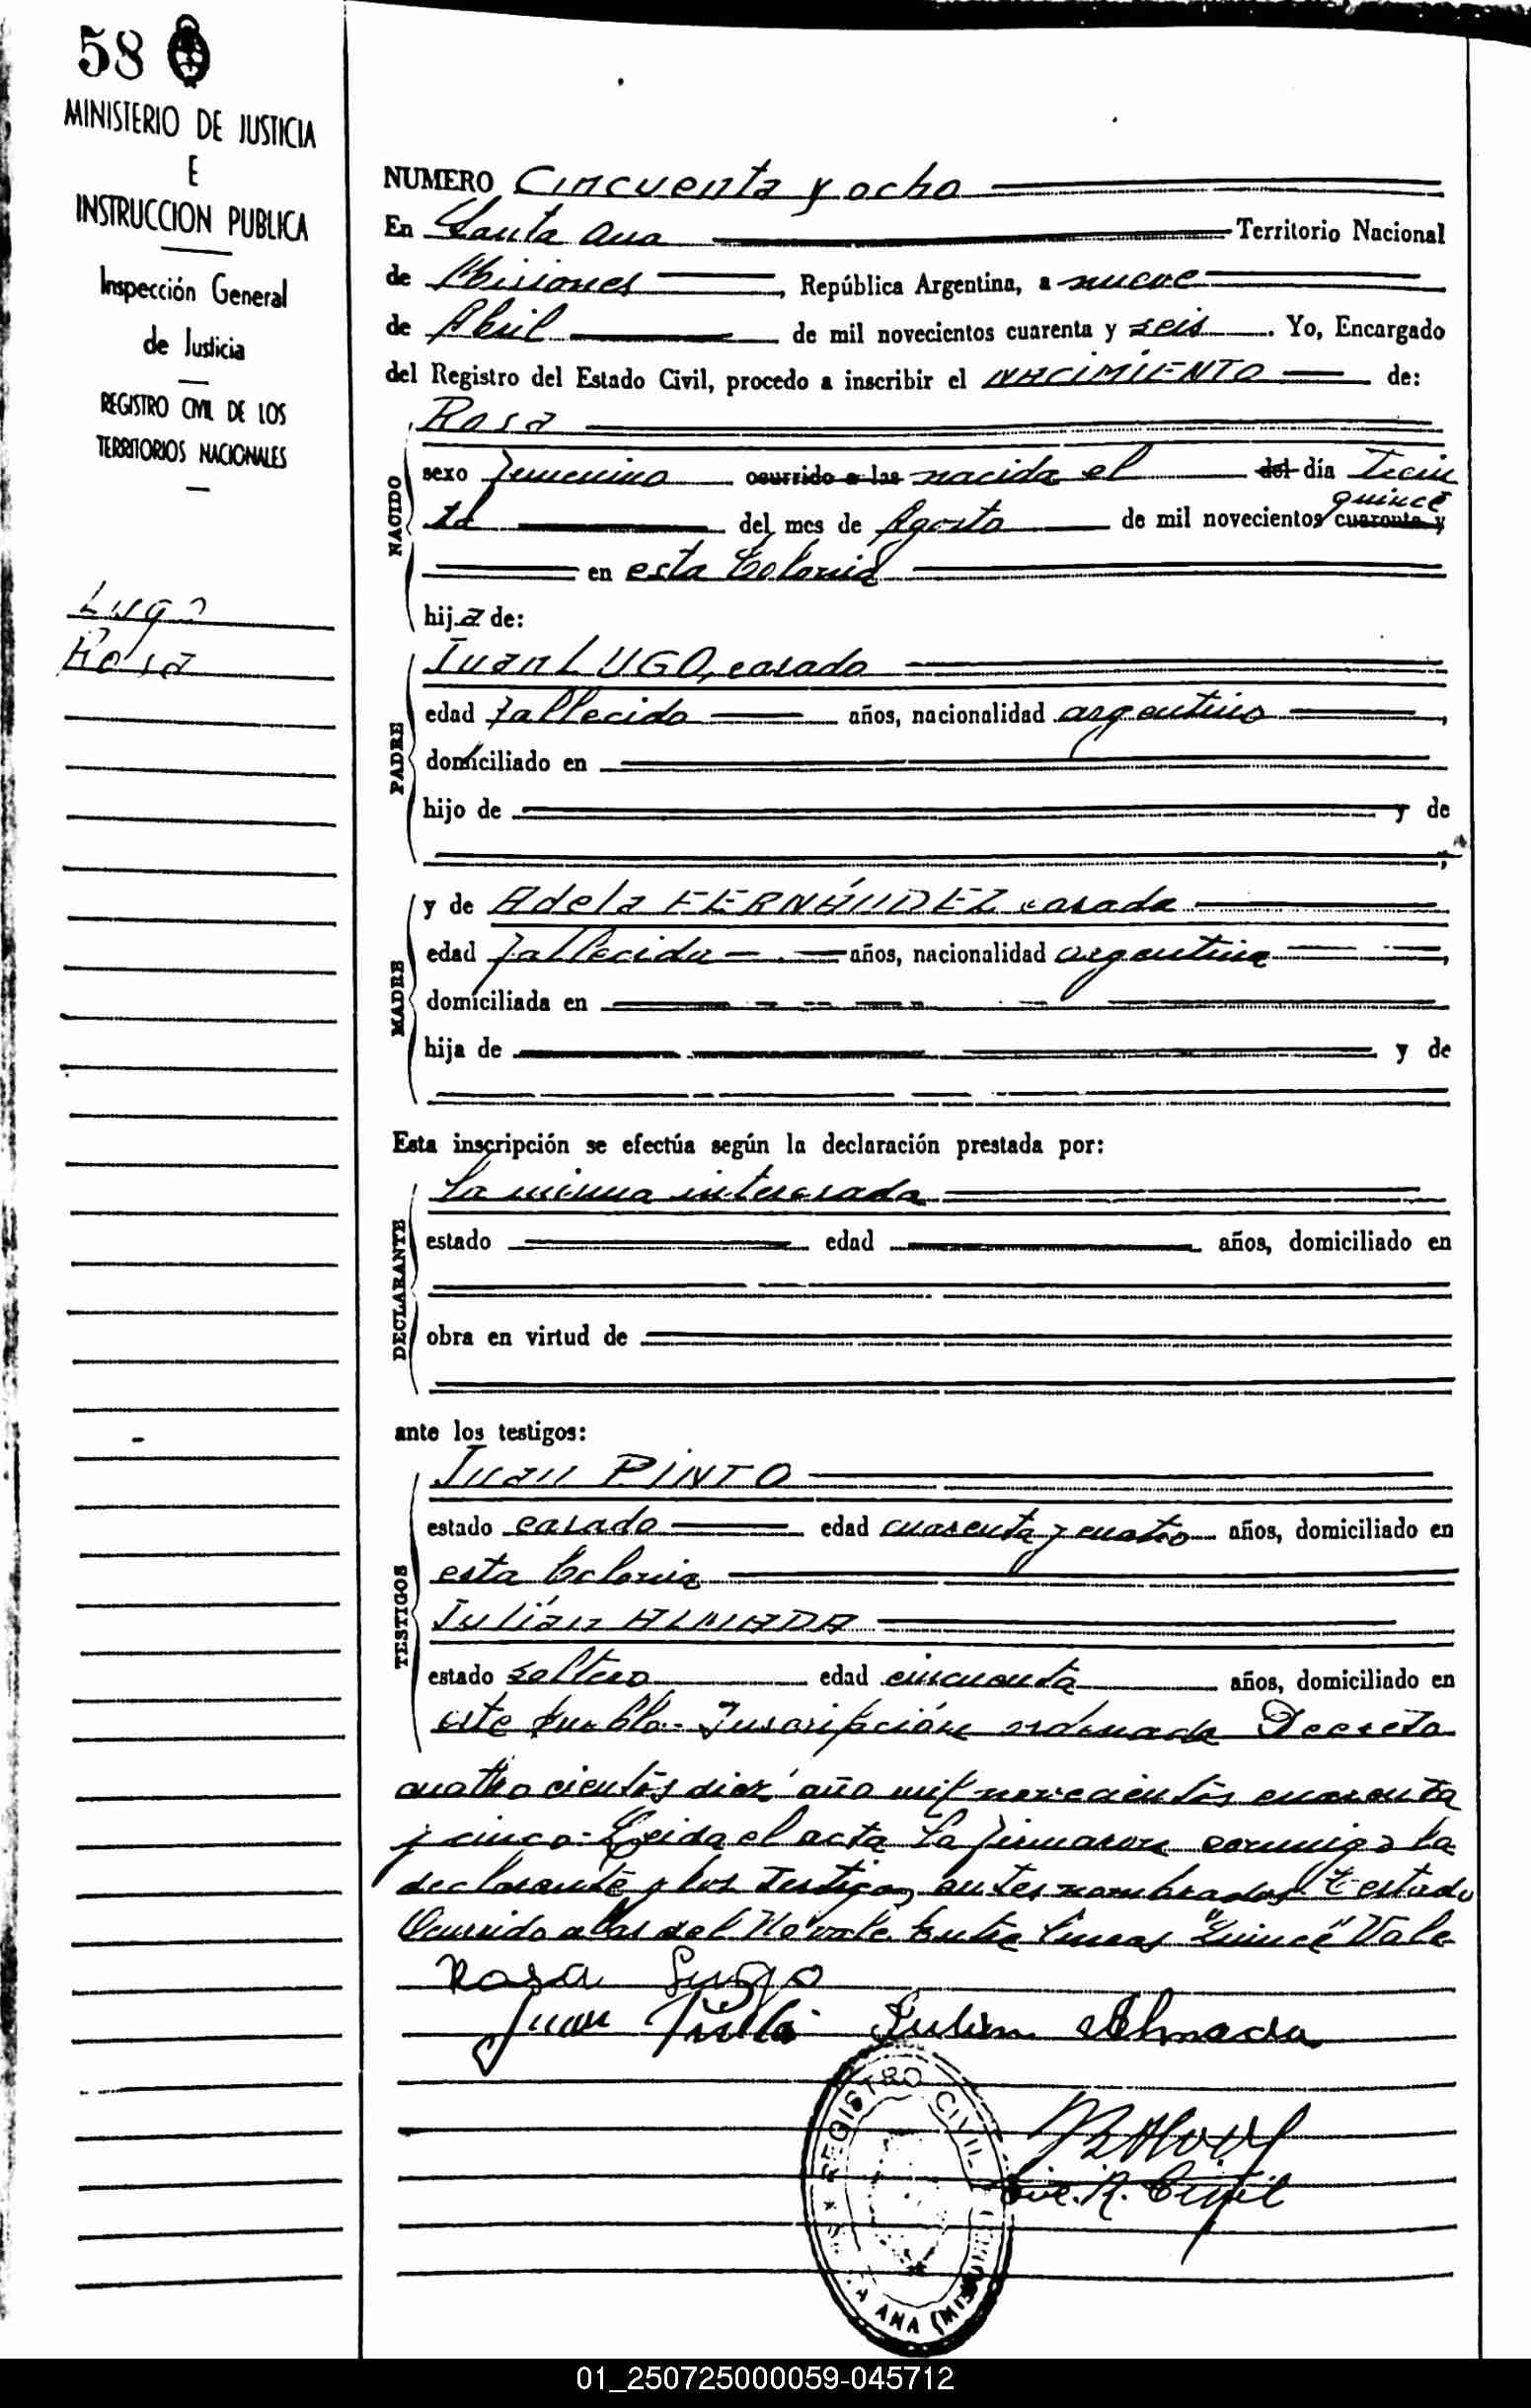 58
MINISTERIO DE JUSTICIA
E
INSTRUCCION PUBLICA
Inspección General
de Justicia
REGISTRO CIVIL DE LOS
TERRITORIOS NACIONALES
Lugo
Rosa
NUMERO Cincuenta y ocho
En Santa Ana Territorio Nacional
de Misiones, República Argentina, a nueve
de Abril de mil novecientos cuarenta y seis. Yo, Encargado
del Registro del Estado Civil, procedo a inscribir el NACIMIENTO de:
NACIDO
Rosa
sexo femenino ocurrido a las nacida el del día Trein
quince
ta del mes de Agosto de mil novecientos cuarenta y
en esta Colonia
hija de:
PADRE
Juan LUGO, casado
edad fallecido años, nacionalidad argentino,
domiciliado en
hijo de y de
;
MADRE
y de Adela FERNÁNDEZ casada
edad fallecida años, nacionalidad argentina,
domiciliada en
hija de y de
Esta inscripción se efectúa según la declaración prestada por:
DECLARANTE
La misma interesada
estado edad años, domiciliado en
obra en virtud de
ante los testigos:
TESTIGOS
Juan PINTO
estado casado edad cuarenta y cuatro años, domiciliado en
esta Colonia
Julián ALMADA
estado soltero edad cincuenta años, domiciliado en
este pueblo- Inscripción ordenada Decreto
cuatrocientos diez año mil novecientos cuarenta
y cinco- Leida el acta la firmaron conmigo la
declarante y los Testigos antes nombrados Testado
Ocurrido a las del No vale Entre lineas "quince" Vale
Rosa Lugo
Juan Pinto Julian Almada
REGISTRO CIVIL
Enc. R. Civil
STA ANA (MISIONES)
01_250725000059-045712